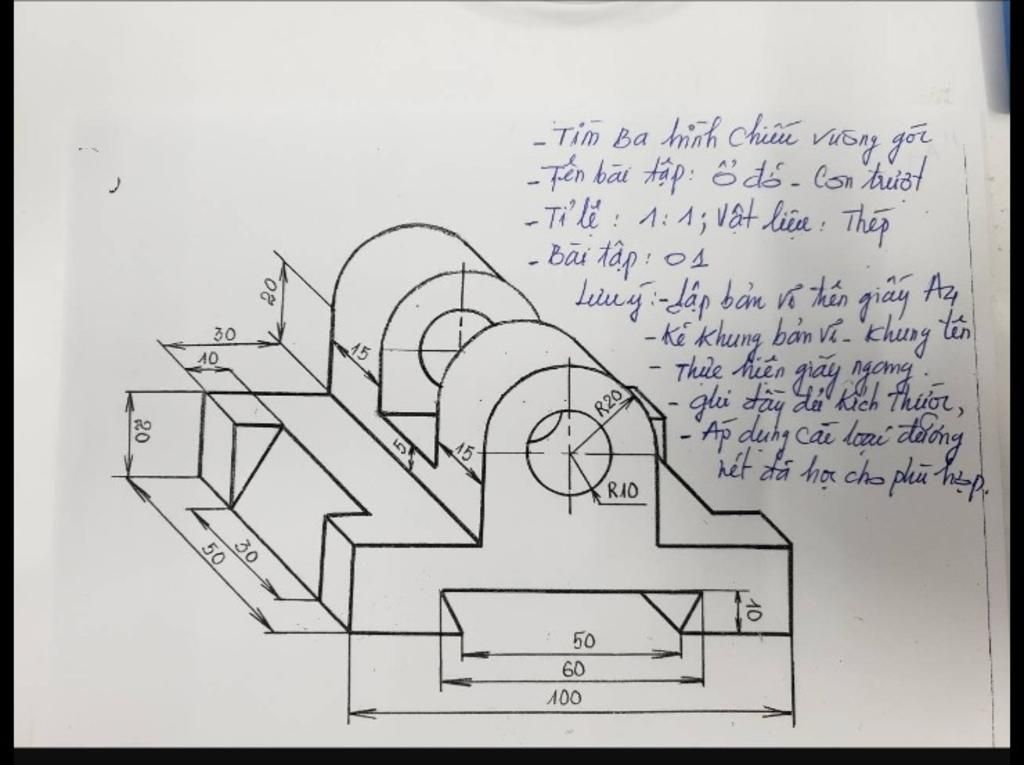 - Tìm Ba hình chiếu vuông góc
- Tên bài tập: Ổ đỡ - Con trượt
- Tỉ lệ : 1:1; Vật liệu: Thép
- Bài tập: 01
Lưu ý: - Lập bản vẽ trên giấy A4
- Kẻ khung bản vẽ - khung tên
- Thực hiện giấy ngang.
- ghi đầy đủ kích thước,
- Áp dụng các loại đường
nét đã học cho phù hợp.
20
30
10
15
20
5
15
R20
R10
50
30
10
50
60
100